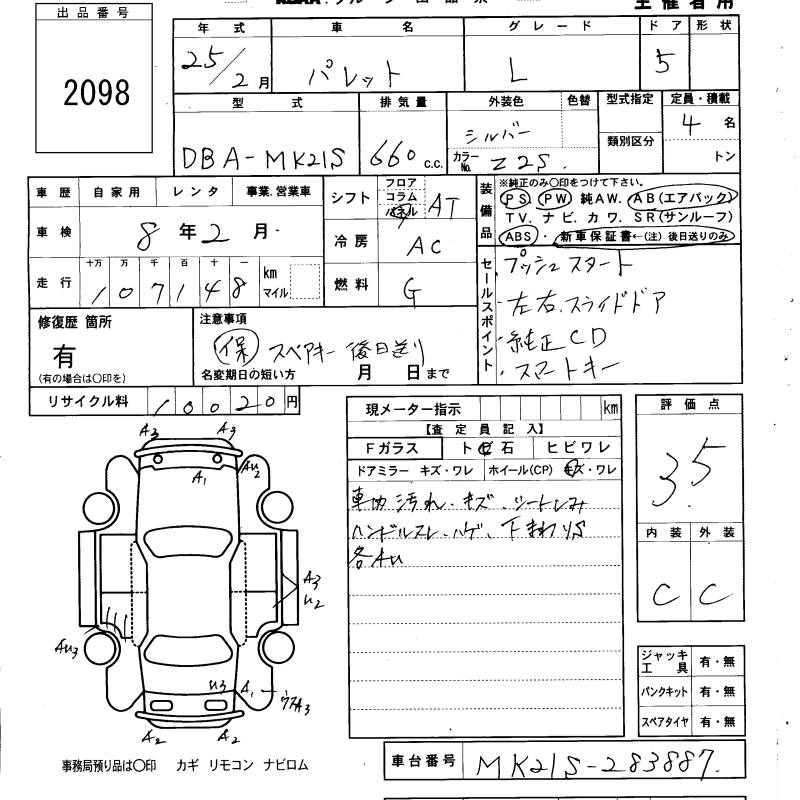 出品番号
2098
主催者用
年式 車名 グレード ドア 形状
25/2月 パレット L 5
型式 排気量 外装色 色替 型式指定 定員・積載
DBA-MK21S 660c.c. シルバー カラーNo. Z2S. 類別区分 4名 トン
車歴 自家用 レンタ 事業.営業車
車検 8年2月
走行 十万 万 千 百 十 一 km マイル
107148
シフト フロア コラム パネル AT
冷房 AC
燃料 G
装備品
※純正のみ〇印をつけて下さい。
PS PW 純AW. AB(エアバック)
TV. ナビ. カワ. SR(サンルーフ)
ABS・新車保証書←(注)後日送りのみ
セールスポイント
・プッシュスタート
・左右.スライドドア
・純正CD
・スマートキー
修復歴 箇所
有
(有の場合は〇印を)
注意事項
保 スペアキー 後日送り
名変期日の短い方 月 日まで
リサイクル料 10020円
現メーター指示 km
【査定員記入】
Fガラス トビ石 ヒビワレ
ドアミラー キズ・ワレ ホイール(CP) キズ・ワレ
車内汚れ.キズ.シートしみ
ハンドルスレ.ハゲ.下まわりS
各AU
評価点
3.5
内装 外装
C C
ジャッキ工具 有・無
パンクキット 有・無
スペアタイヤ 有・無
A3 A3
A1 AU2
A3
U2
AU3
U3 A1
A3
A2 A2
事務局預り品は〇印 カギ リモコン ナビロム
車台番号 MK21S-283887.